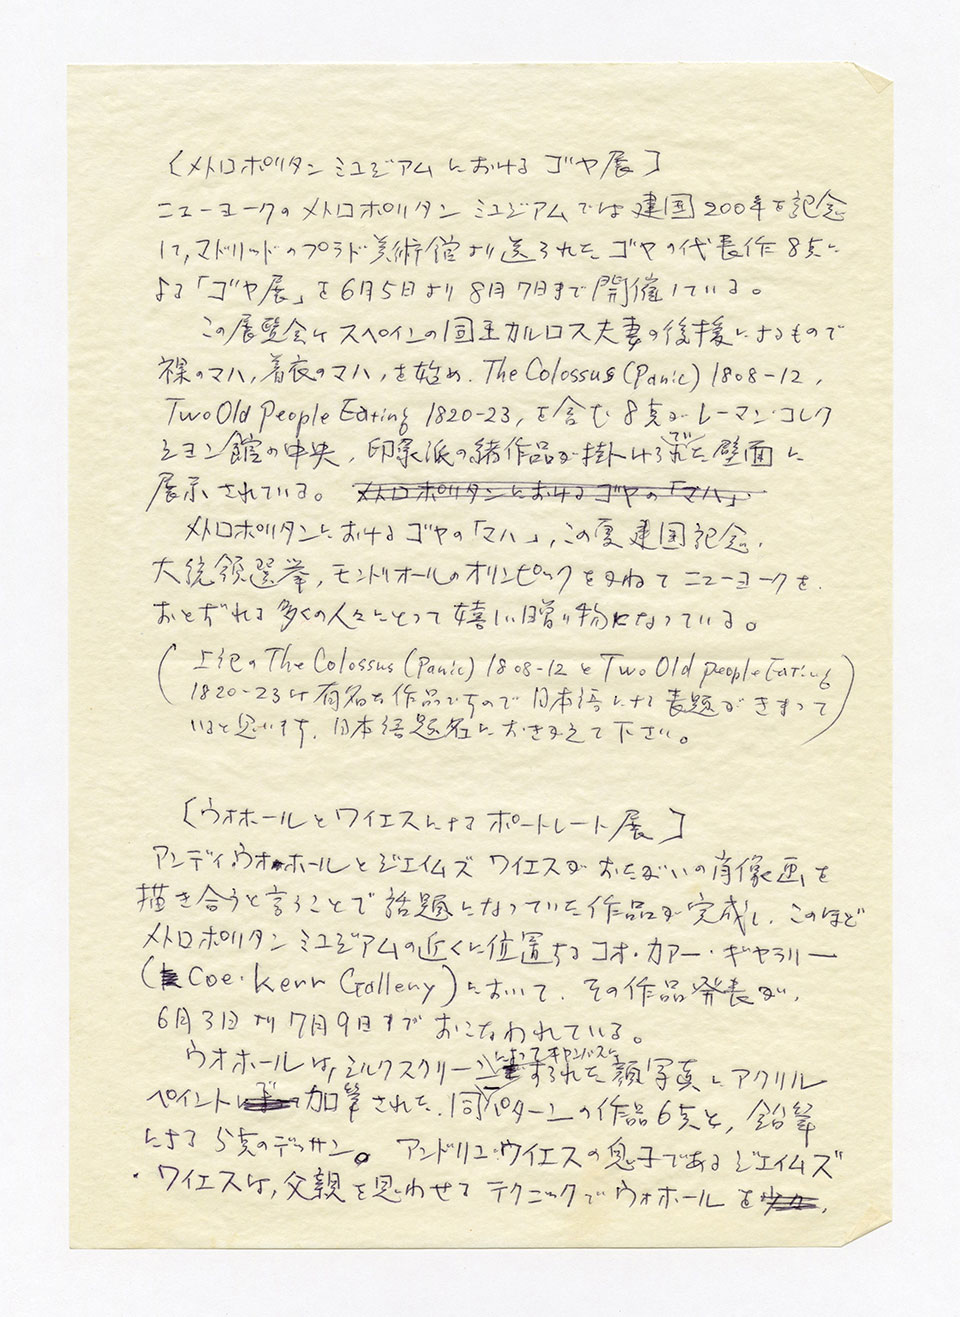 〔メトロポリタン ミュジアムにおける ゴヤ展〕
ニューヨークのメトロポリタン ミュジアムでは建国200年を記念
して,マドリッドのプラド美術館より送られた ゴヤの代表作8点に
よる「ゴヤ展」を6月5日より8月7日まで開催している。
この展覧会はスペインの国王カルロス夫妻の後援によるもので
裸のマハ,着衣のマハ,を始め. The Colossus (Panic) 1808-12,
Two Old People Eating 1820-23, を含む 8点がレーマン・コレク
ション館の中央, 印象派の諸作品が掛けられた壁面に
展示されている。 メトロポリタンにおけるゴヤの「マハ」
メトロポリタンにおけるゴヤの「マハ」,この夏 建国記念,
大統領選挙,モントリオールのオリンピックをかねて ニューヨークを
おとずれる多くの人々にとって嬉しい贈り物になっている。
(上記の The Colossus (Panic) 1808-12 と Two Old People Eating
1820-23は有名な作品ですので 日本語による表題がきまって
いると思います, 日本語題名におきかえて下さい。)
〔ウオホールとワイエスによる ポートレート展〕
アンディ,ウオホールとジェイムズ ワイエスが おたがいの肖像画を
描き合うと言うことで話題になっていた作品が完成し. このほど
メトロポリタン ミュジアムの近くに位置する コオ・カアー・ギャラリー
(Coe・Kerr Gallery)において, その作品発表が,
6月3日より7月9日までおこなわれている。
ウオホールは,シルクスクリーンによってキャンバスにすられた顔写真にアクリル
ペイントで加筆された, 同パターンの作品6点と, 鉛筆
による5点のデッサン。 アンドリュ・ウイエスの息子であるジェイムズ
・ワイエスは,父親を思わせる テクニックでウォホールを少々,